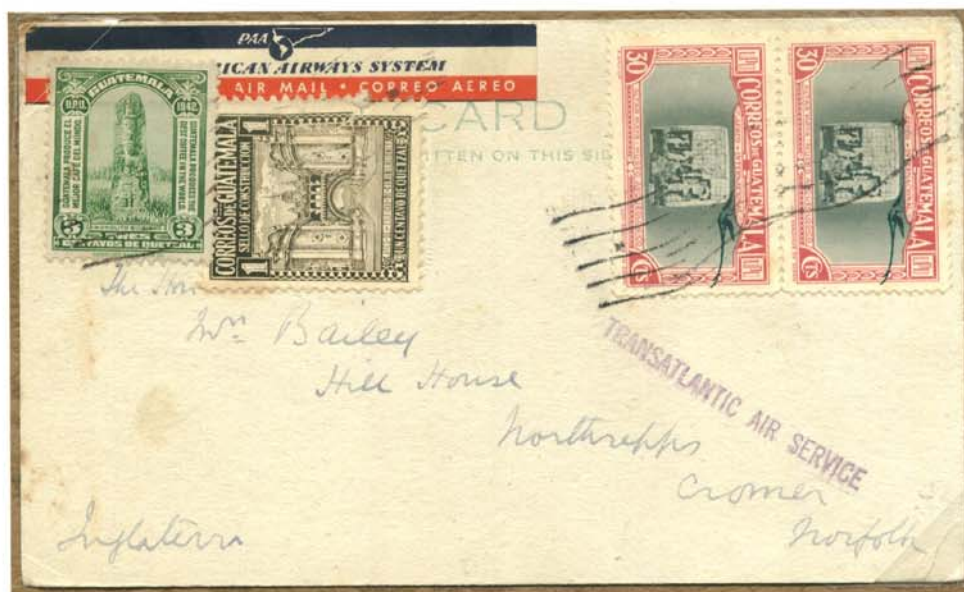 PAA
RICAN AIRWAYS SYSTEM
AIR MAIL • CORREO AEREO
CARD
TTEN ON THIS SID
GUATEMALA
U.P.U. 1942
GUATEMALA PRODUCE EL
MEJOR CAFÉ DEL MUNDO
GUATEMALA PRODUCES THE
BEST COFFEE IN THE WORLD
3 TRES 3
CENTAVOS DE QUETZAL
CORREOS DE GUATEMALA
SELLO DE CONSTRUCCION
1 1
UN CENTAVO DE QUETZAL
30 CORREOS DE GUATEMALA Cts
30 CORREOS DE GUATEMALA Cts
The Hon
Wm Bailey
Hill House
Northrepps
Cromer
Norfolk
Inglaterra
TRANSATLANTIC AIR SERVICE